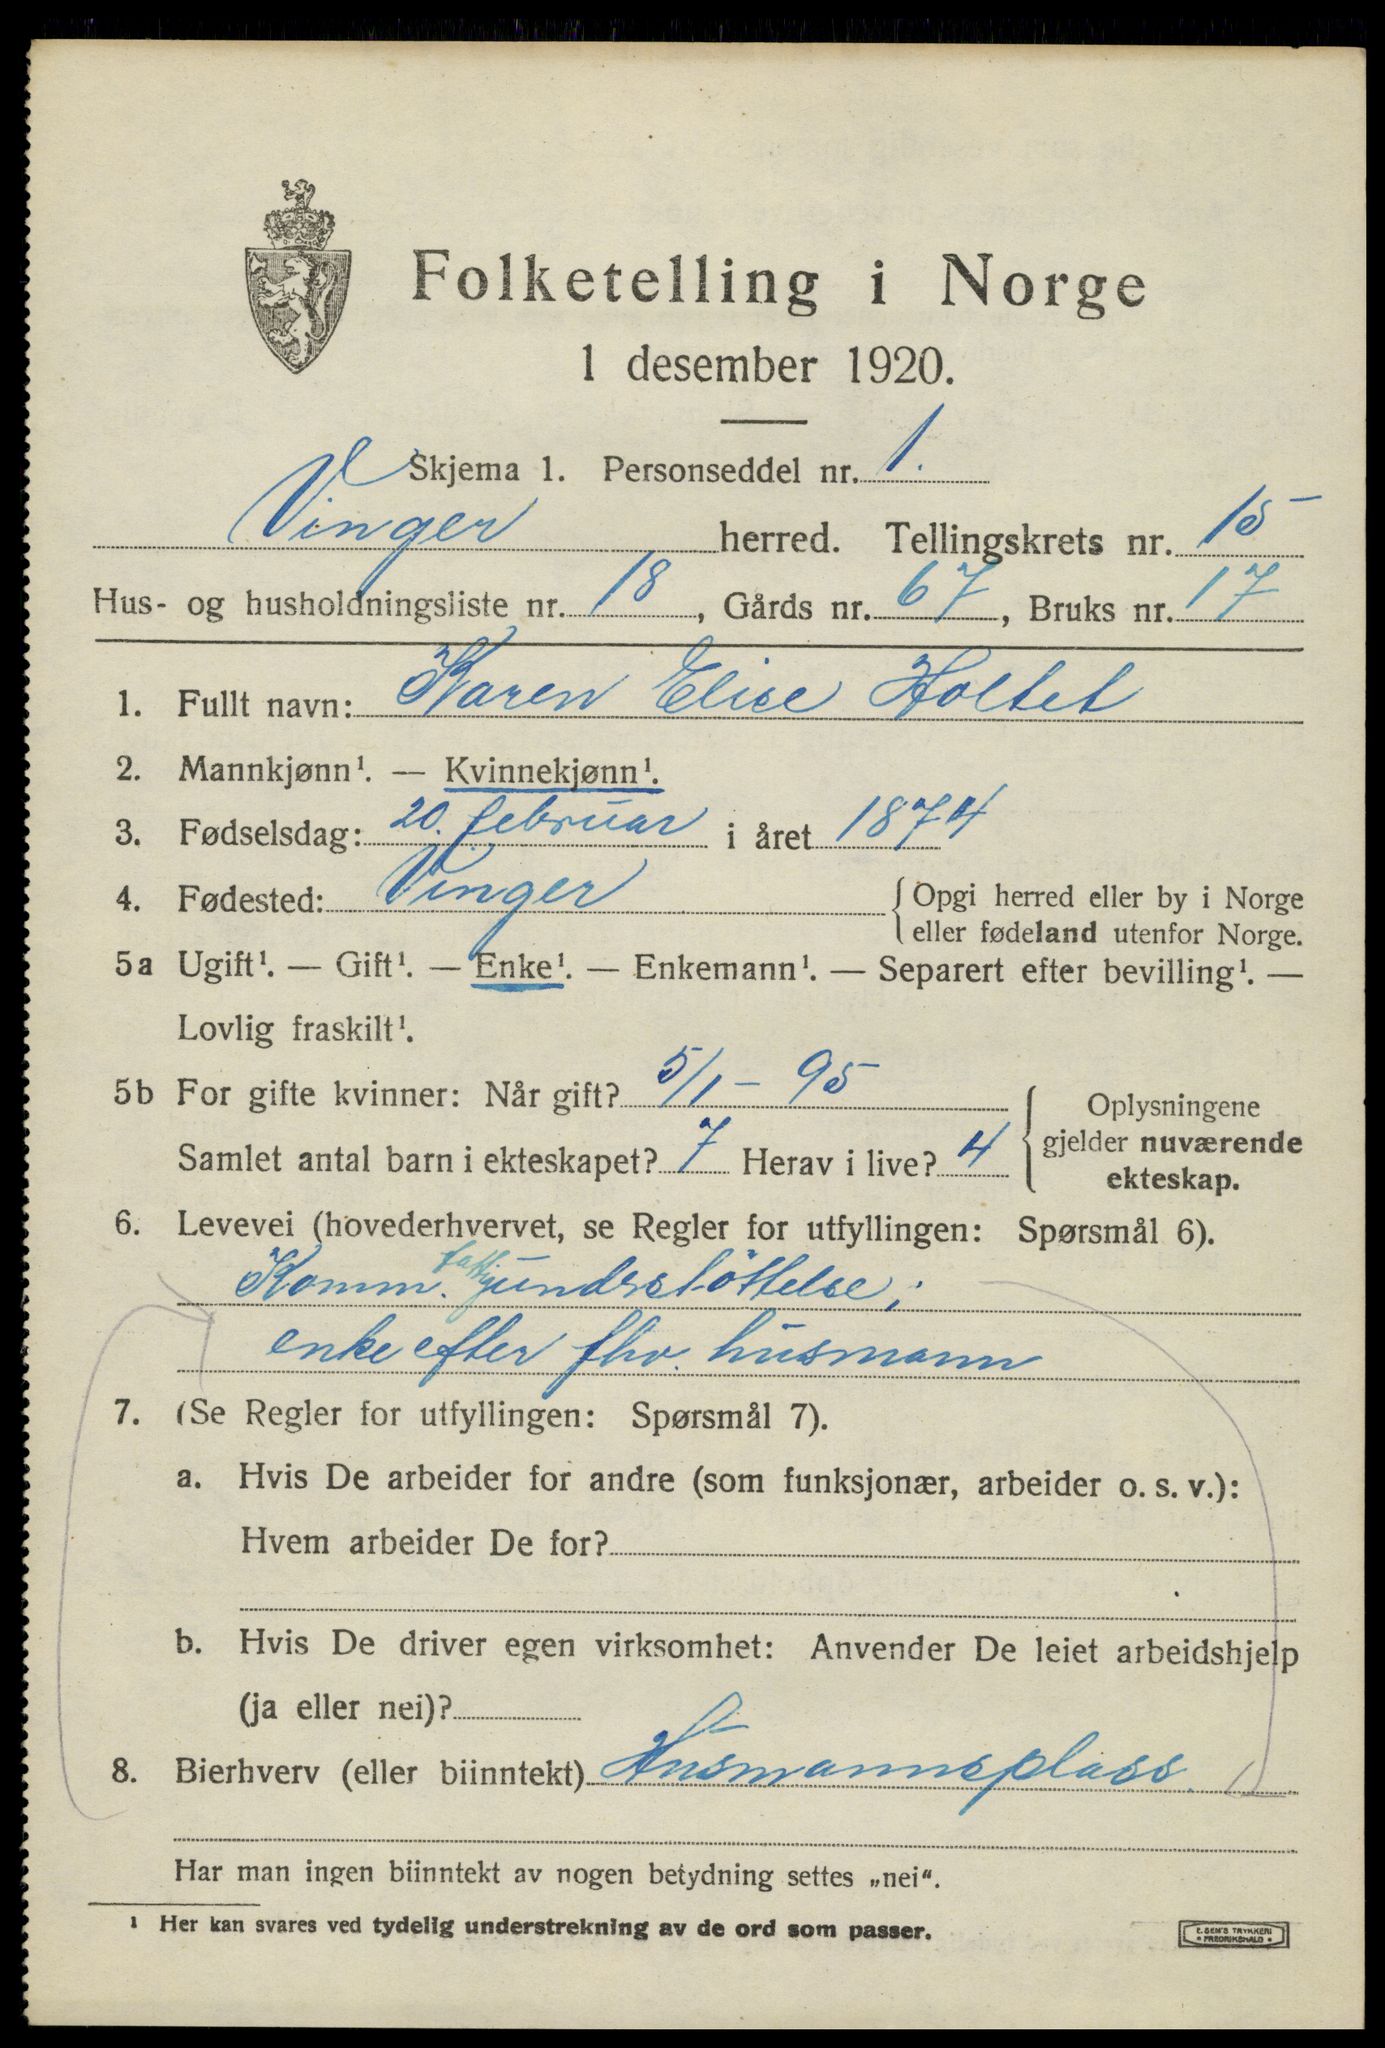 Folketelling i Norge
1 desember 1920.
Skjema 1. Personseddel nr. 1.
Vinger herred. Tellingskrets nr. 15
Hus- og husholdningsliste nr. 18, Gårds nr. 67, Bruks nr. 17
1. Fullt navn: Karen Elise Holtet
2. Mannkjønn¹. — Kvinnekjønn¹.
3. Fødselsdag: 20. februar i året 1874
4. Fødested: Vinger {Opgi herred eller by i Norge
eller fødeland utenfor Norge.
5a Ugift¹. — Gift¹. — Enke¹. — Enkemann¹. — Separert efter bevilling¹. —
Lovlig fraskilt¹.
5b For gifte kvinner: Når gift? 5/1 – 95
Samlet antal barn i ekteskapet? 7 Herav i live? 4
{Oplysningene
gjelder nuværende
ekteskap.
6. Levevei (hovederhvervet, se Regler for utfyllingen: Spørsmål 6).
fattig
Komm. undrstöttelse;
enke efter fhv. husmann
7. (Se Regler for utfyllingen: Spørsmål 7).
a. Hvis De arbeider for andre (som funksjonær, arbeider o. s. v.):
Hvem arbeider De for?
b. Hvis De driver egen virksomhet: Anvender De leiet arbeidshjelp
(ja eller nei)?
8. Bierhverv (eller biinntekt) Husmannsplass.
Har man ingen biinntekt av nogen betydning settes „nei“.
¹ Her kan svares ved tydelig understrekning av de ord som passer.
E. SEM'S TRYKKERI
• FREDRIKSHALD •